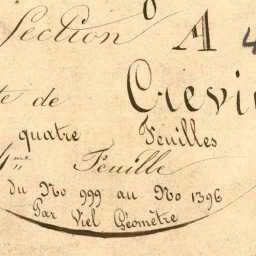 Section A 4
de Crevi
quatre Feuilles
4me Feuille
du No 999 au No 1396
Par Viel Géomètre